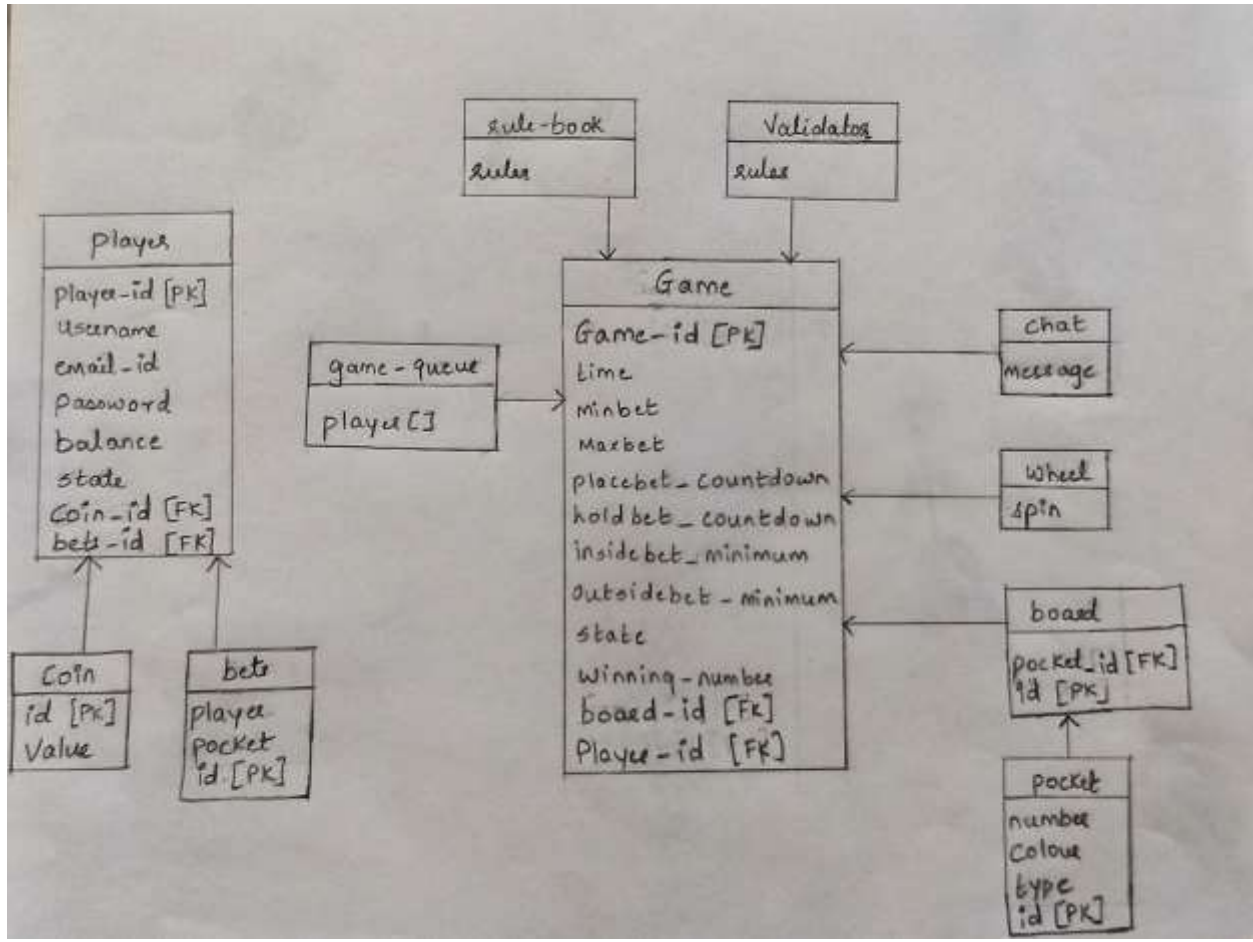 rule-book
rules
Validator
rules
player
player-id [PK]
username
email-id
password
balance
state
Coin-id [FK]
bets-id [FK]
Coin
id [PK]
Value
bets
player
pocket
id [PK]
game-queue
player[]
Game
Game-id [PK]
time
minbet
Maxbet
placebet_countdown
holdbet_countdown
insidebet_minimum
outsidebet-minimum
state
winning-number
board-id [FK]
Player-id [FK]
chat
message
wheel
spin
board
pocket_id [FK]
id [PK]
pocket
number
colour
type
id [PK]